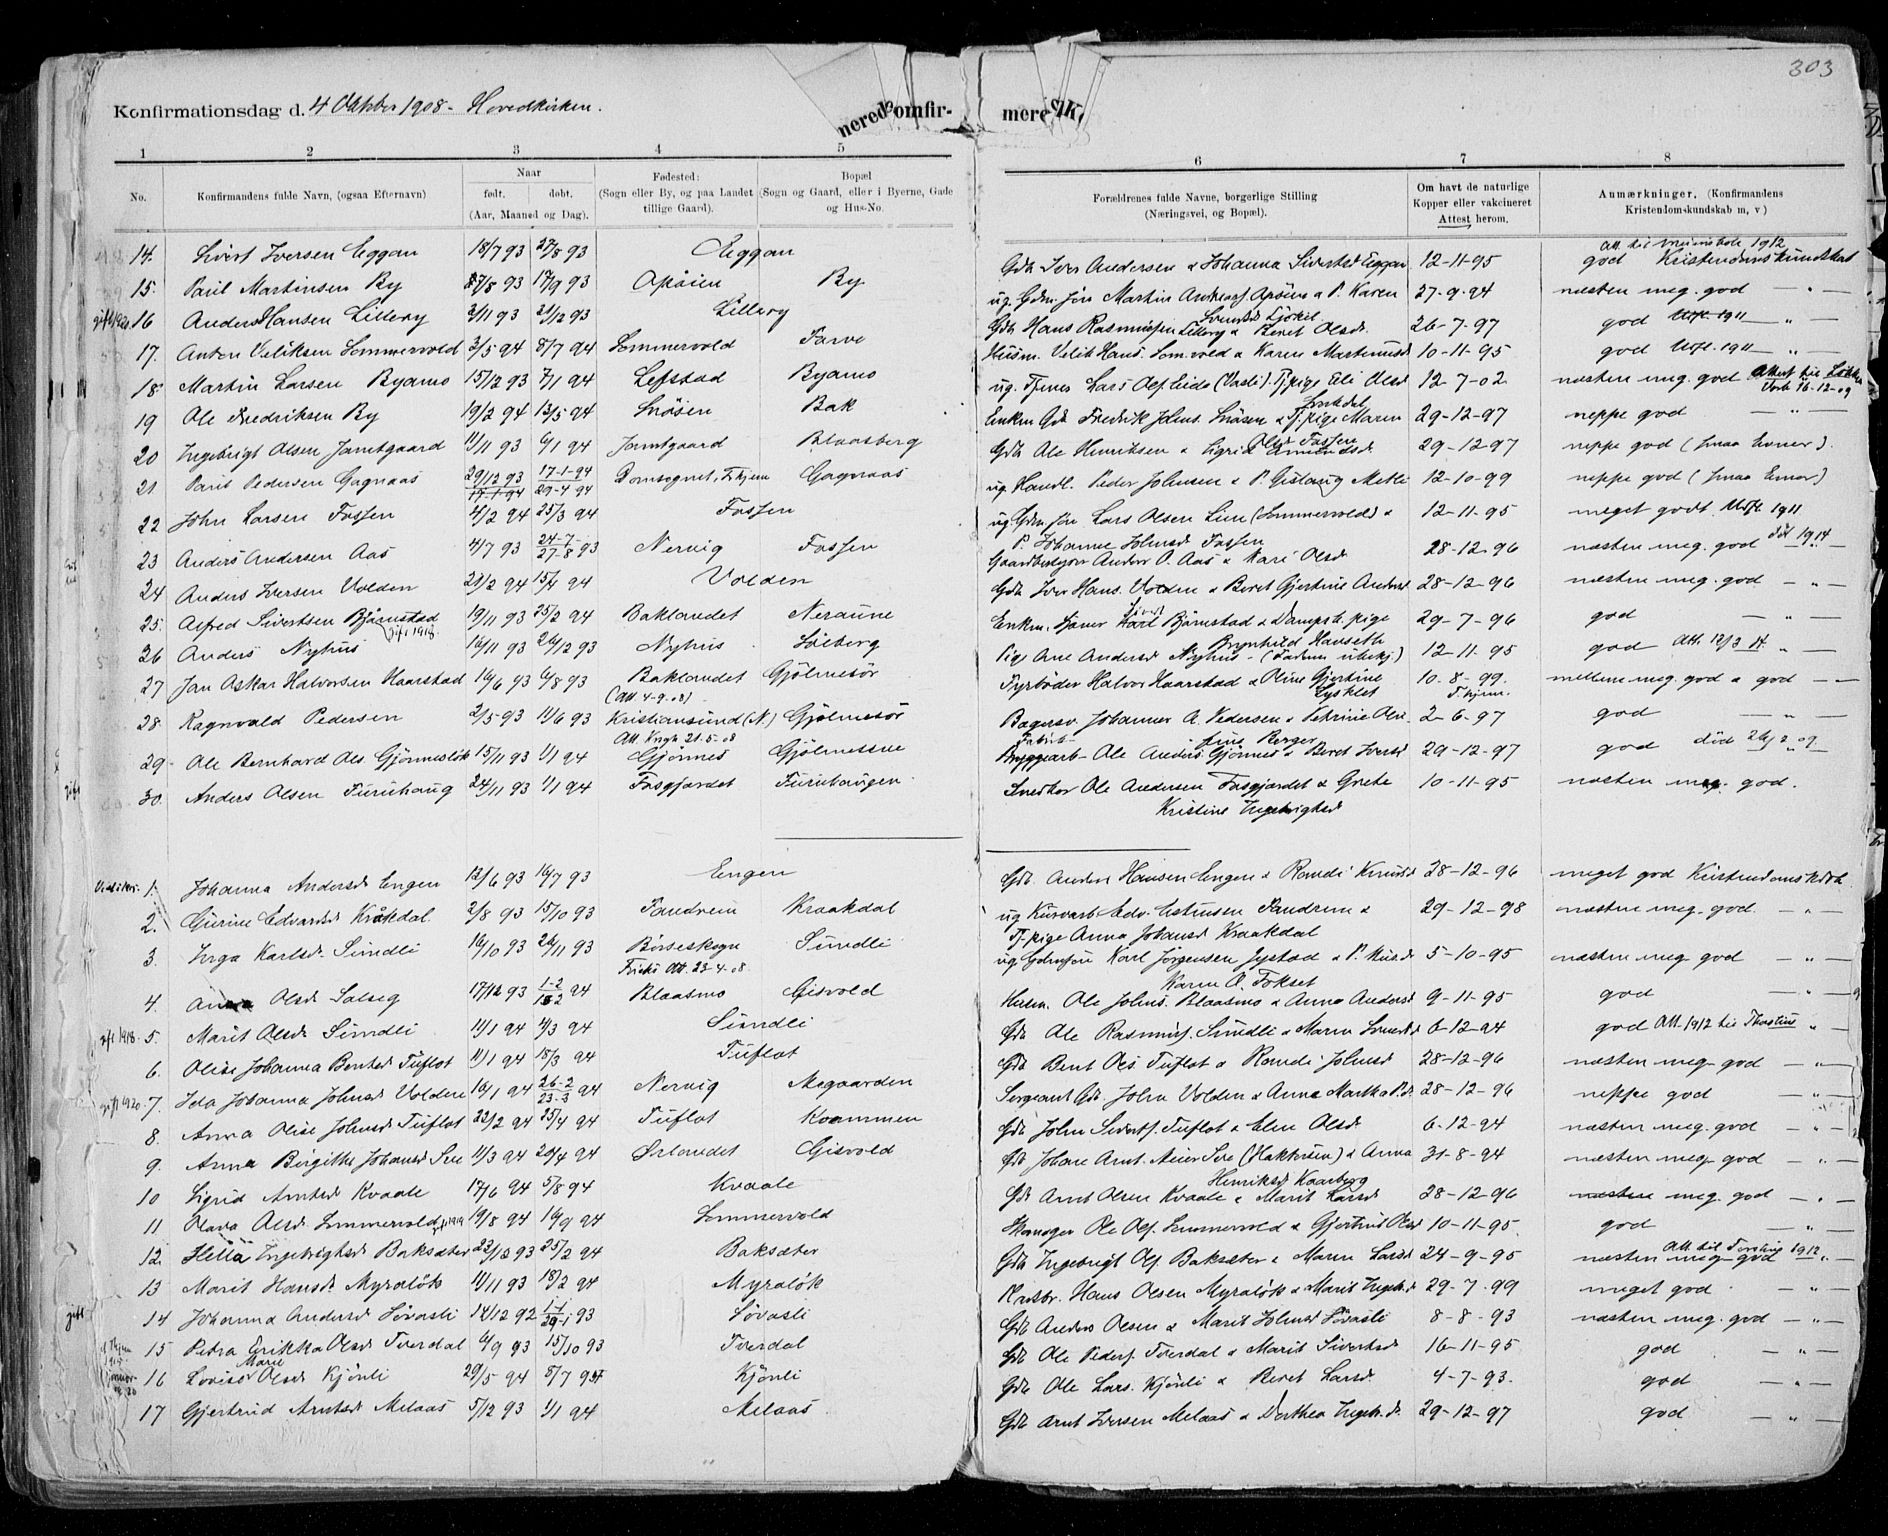 303
Konfirmationsdag d. 4 Oktober 1908 - Hovedkirken.
nerede omfir-
mere K.
1 2 3 4 5 6 7 8
No. Konfirmandens fulde Navn, (ogsaa Efternavn) Naar født. døbt. (Aar, Maaned og Dag). Fødested: (Sogn eller By, og paa Landet tillige Gaard). Bopæl (Sogn og Gaard, eller i Byerne, Gade og Hus-No. Forældrenes fulde Navne, borgerlige Stilling (Næringsvei, og Bopæl). Om havt de naturlige Kopper eller vakcineret Attest herom. Anmærkninger. (Konfirmandens Kristendomskundskab m, v)
14. Sivert Iversen Eggan 18/7 93 27/8 93 Eggan Gdb Iver Andersen & Johanna Sivertsd Eggan 12-11-95 god Kristendomskundskab
15. Paul Martinsen By 93 17/9 93 Apøien By ug. Gdm. søn Martin Apøien & P. Karen 27-9-94 næsten meg. god - " -
gift 1920 16 Anders Hansen Lillery 2/11 93 93 Lillery Gdb Hans Rasmussen Lillery & Beret Olsd. 26-7-97 god Udfl. 1911 - " -
17. Anton Veliksen Sommervold 3/5 94 8/7 94 Sommervold Farve Husm. Velik Hans. Som.vold & Karen Martinusd 10-11-95 god Udfl. 1911 - " -
18. Martin Larsen Byamo 15/12 93 7/1 94 Lefstad Byamo ug. Tjener Lars (Vasli). Tj. pige Eli Olsd 12-7-02 næsten meg. god Attest til Løkken Fork 16-12-09
19 Ole Fredriksen By 19/2 94 13/5 94 Snøsen Bak Enkm Gdb Fredrik Johns. Snøsen & Tj. pige Maren 29-12-97 neppe god - " -
20 Ingebrigt Olsen Jamtgaard 11/11 93 6/1 94 Jamtgaard Blaasberg Gdb Ole Henriksen & Sigrid 29-12-97 neppe god (smaa Evner).
21 Parit Pedersen Gagnaas 29/12 93 17-1-94 29-4 94 Domsognet, Tr.hjem Gagnaas ug. Handl. Peder Johnsen & P. Gislaug Metli 12-10-99 neppe god (smaa Evner)
22 John Larsen Fossen 4/2 94 25/3 94 Fossen ug Gdm. søn Lars Olsen Lien (Sommervold) & P. Johanne Johnsd Fossen 12-11-95 meget godt Udfl. 1911
23 Anders Andersen Aas 4/7 93 24-7 27-8 93 Nervig Fossen Gaardbestyrer Anders O. Aas & Kari Olsd 28-12-96 næsten meg. god 1914
24 Anders Iversen Volden 21/2 94 15/4 94 Volden Gdb Iver Hans. Volden & Beret Gjertine Andersd 28-12-96 næsten meg. god - " -
25. Alfred Sivertsen Bjørnstad 19/11 93 25/2 94 Baklandet Neraune Enkm. Tjener Sivert Bjørnstad & Dampsk. pige Brynhild Hanseth 29-7-96 god - " -
26 Anders Nyhus gift 1918. 16/11 93 26/12 93 Nyhus Solberg Pige Ane Andersd Nyhus - (Faderen ubekj.) 12-11-95 god Att. 12/3 14. "
27 Jan Oskar Halvorsen Haarstad 16/6 93 6/8 93 Baklandet (Att. 4-9-08) Gjølmesør Fyrbøder Halvor Haarstad & Oline Gjertine Lysklet 10-8-99. Tr.hjem. mellem meg. god & god - " -
28 Ragnvald Pedersen 2/5 93 11/6 93 Kristiansund (N) Att. 21-5-08 Gjølmesør Bagersv. Johannes A. Pedersen & Petrine Berger 2-6-97 god - " -
29 Ole Bernhard Ols. Gjønnesløk 15/11 93 1/1 94 Gjønnes Gjølmesøre Fabrik- Bryggearb Ole Anders. Gjønnes & Beret Iversd 29-12-97 god død 26/2 09
gift 30. Anders Olsen Furuhaug 24/11 93 1/1 94 Fosgjardet Furuhaugen Snedker Ole Andersen Fosgjardet & Grete Kristine Ingebrigtsd 10-11-95 næsten meg. god.
1. Johanna Andersd Engen 12/6 93 16/7 93 Engen Gdb. Anders Hansen Engen & Randi Knudsd 28-12-96 meget god Kristendomskdsk
2. Gurine Edvardsd Kråkdal 2/8 93 15/10 93 Tandrem Kraakdal ug Kurvarb Edv. Estensen Tandrem & Tj. pige Anna Johansd Kraakdal 29-12-98 næsten meg. god. - " -
3. Inga Karlsd Sundli 16/10 93 26/11 93 Børseskogn Att. 23-4-08 Sundli ug. Gdmsøn Karl Jørgensen Jystad & P. Karen O. Fokset 5-10-95 næsten meg god - " -
4. Anna Olsd Solseg 17/12 93 1-2 94 Blaasmo Gisvold Husm. Ole Johns. Blaasmo & Anna Andersd 9-11-95 god - " -
gift 1918. 5. Marit Olsd Sundli 11/1 94 11/3 94 Sundli Gdb Ole Rasmuss. Sundli & Maren 6-12-94 god Att. 1912 til "
6. Olise Johanna Bentsd Tuflot 11/1 94 18/3 94 Tuflot Gdb Bent Ols Tuflot & Randi Johnsd 28-12-96 næsten meg. god - " -
gift 1920. 7. Ida Johanna Johnsd Volden 16/1 94 26-2 23-3 94 Nervig Megaarden Sergeant Gdb. John Volden & Anna Martha P.d. 28-12-96 neppe god - " -
8. Anna Olise Johnsd Tuflot 22/2 94 25/4 94 Tuflot Kvammen Gdb John Siverts. Tuflot & Elen Olsd 6-12-94 næsten meg. god - " -
9. Anna Birgithe Johansd Sve 11/3 94 20/4 94 Ørlandet Gisvold Gdb Johan Arnt Meier Sve (Haktorsen) & Anna Henriksd Kaarberg 31-8-94 næsten meg. god - " -
10 Sigrid Arntsd Kvaale 17/6 94 5/8 94 Kvaale Gdb Arnt Olsen Kvaale & Marit Larsd 28-12-96 næsten meg. god - " -
11 Olava Olsd Sommervold gift 1919 19/8 94 16/9 94 Sommervold Ole Ols. Sommervold & Gjertrud Olsd 10-11-95 god - " -
12. Ingebrigtsd Baksæter 22/12 93 25/2 94 Baksæter Gdb Ingebrigt Ols. Baksæter & Maren Larsd 24-9-95 næsten meg. god 1912
13 Marit Hansd. Myraløk 11/11 93 18/2 94 Myraløk Pladsbr. Hans Olsen Myraløk & Marit Ingebr.d 29-7-99 meget god. - " -
gift 14 Johanna Andersd Søvasli 14/12 92 93 Søvasli Gdb Anders Olsen & Marit Johnsd Søvasli 8-8-93 næsten meg. god - " -
15 Petra Erikka Olsd Tverdal 6/9 93 15/10 93 Tverdal Gdb Ole Peders. Tverdal & Marit Sivertsd 16-11-95 god - " -
16 Lovise Marie Olsd Kjønli 29/5 94 8/7 94 Kjønli Gdb Ole Lars. Kjønli & Beret Larsd. 4-7-93. god - " -
17 Gjertrud Arntsd Melaas 5/12 93 1/1 94 Melaas Gdb Arnt Iversen Melaas & Dorthea Ingebr.d. 29-12-97 god - " -